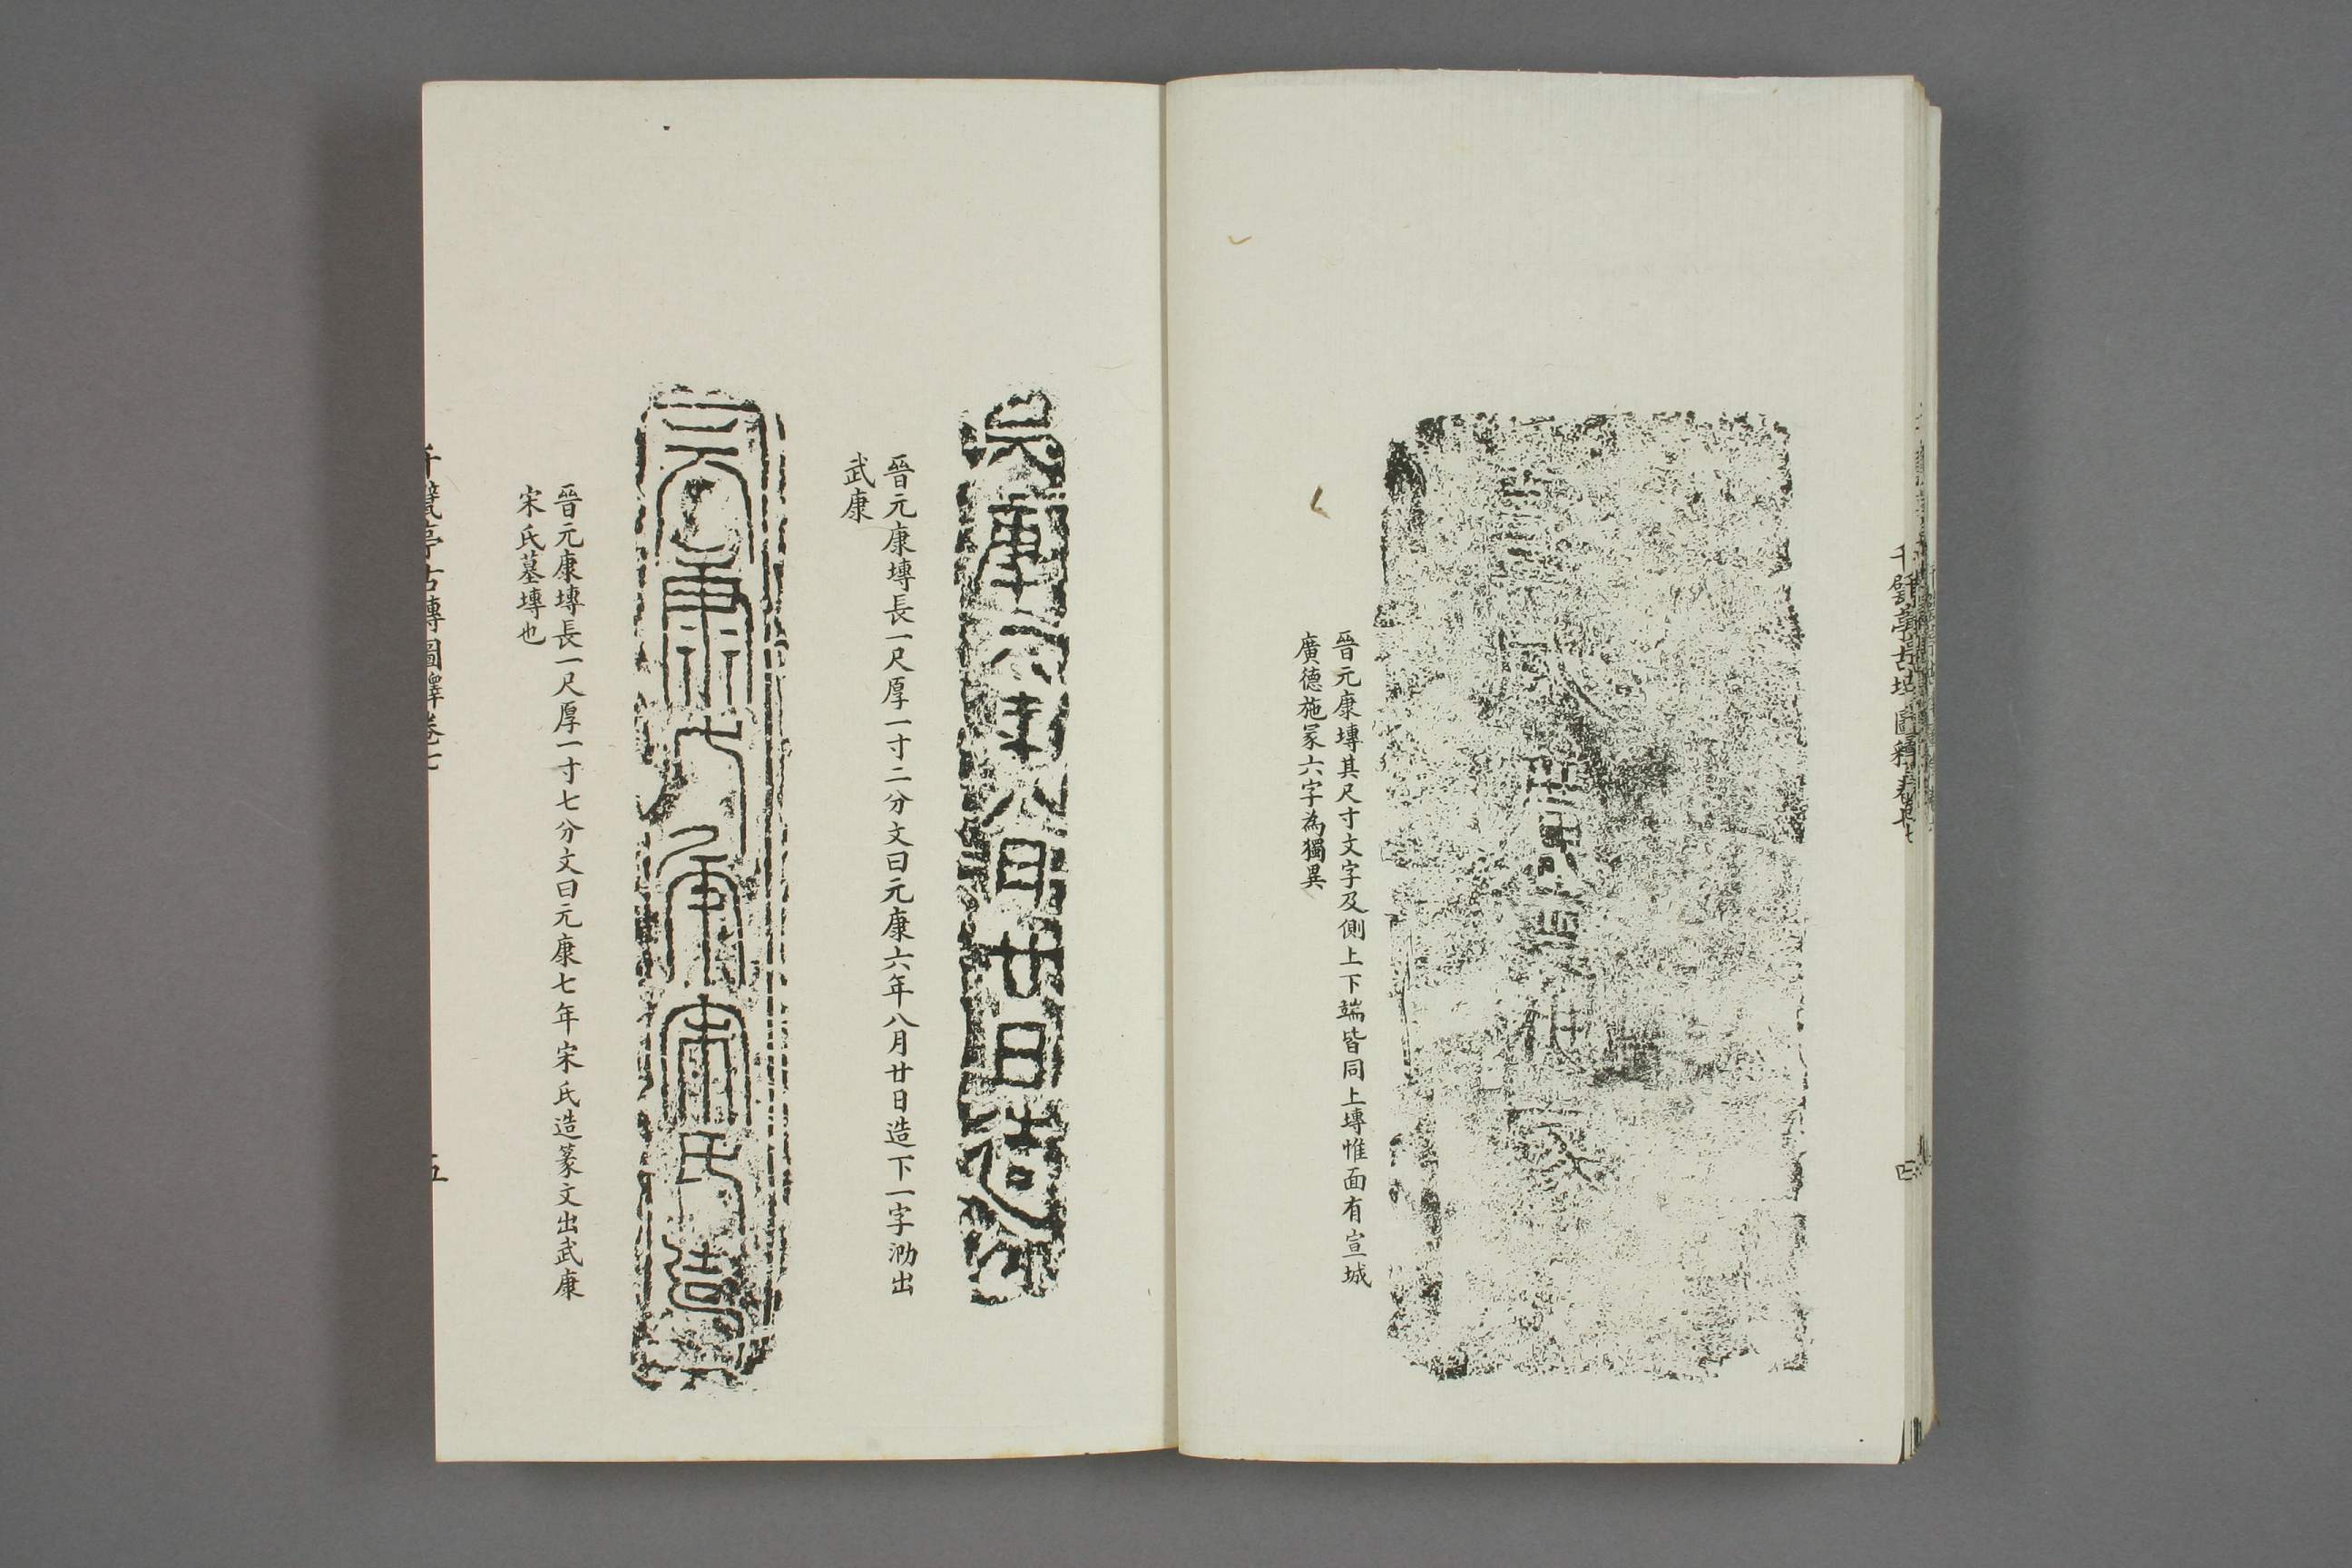 千甓亭古塼圖釋卷七
四
晉元康塼其尺寸文字及側上下端皆同上塼惟面有宣城
廣德施冢六字為獨異
晉元康塼長一尺厚一寸二分文曰元康六年八月廿日造下一字泐出
武康
元康七年宋氏造
晉元康塼長一尺厚一寸七分文曰元康七年宋氏造篆文出武康
宋氏墓塼也
千甓亭古塼圖釋卷七
五